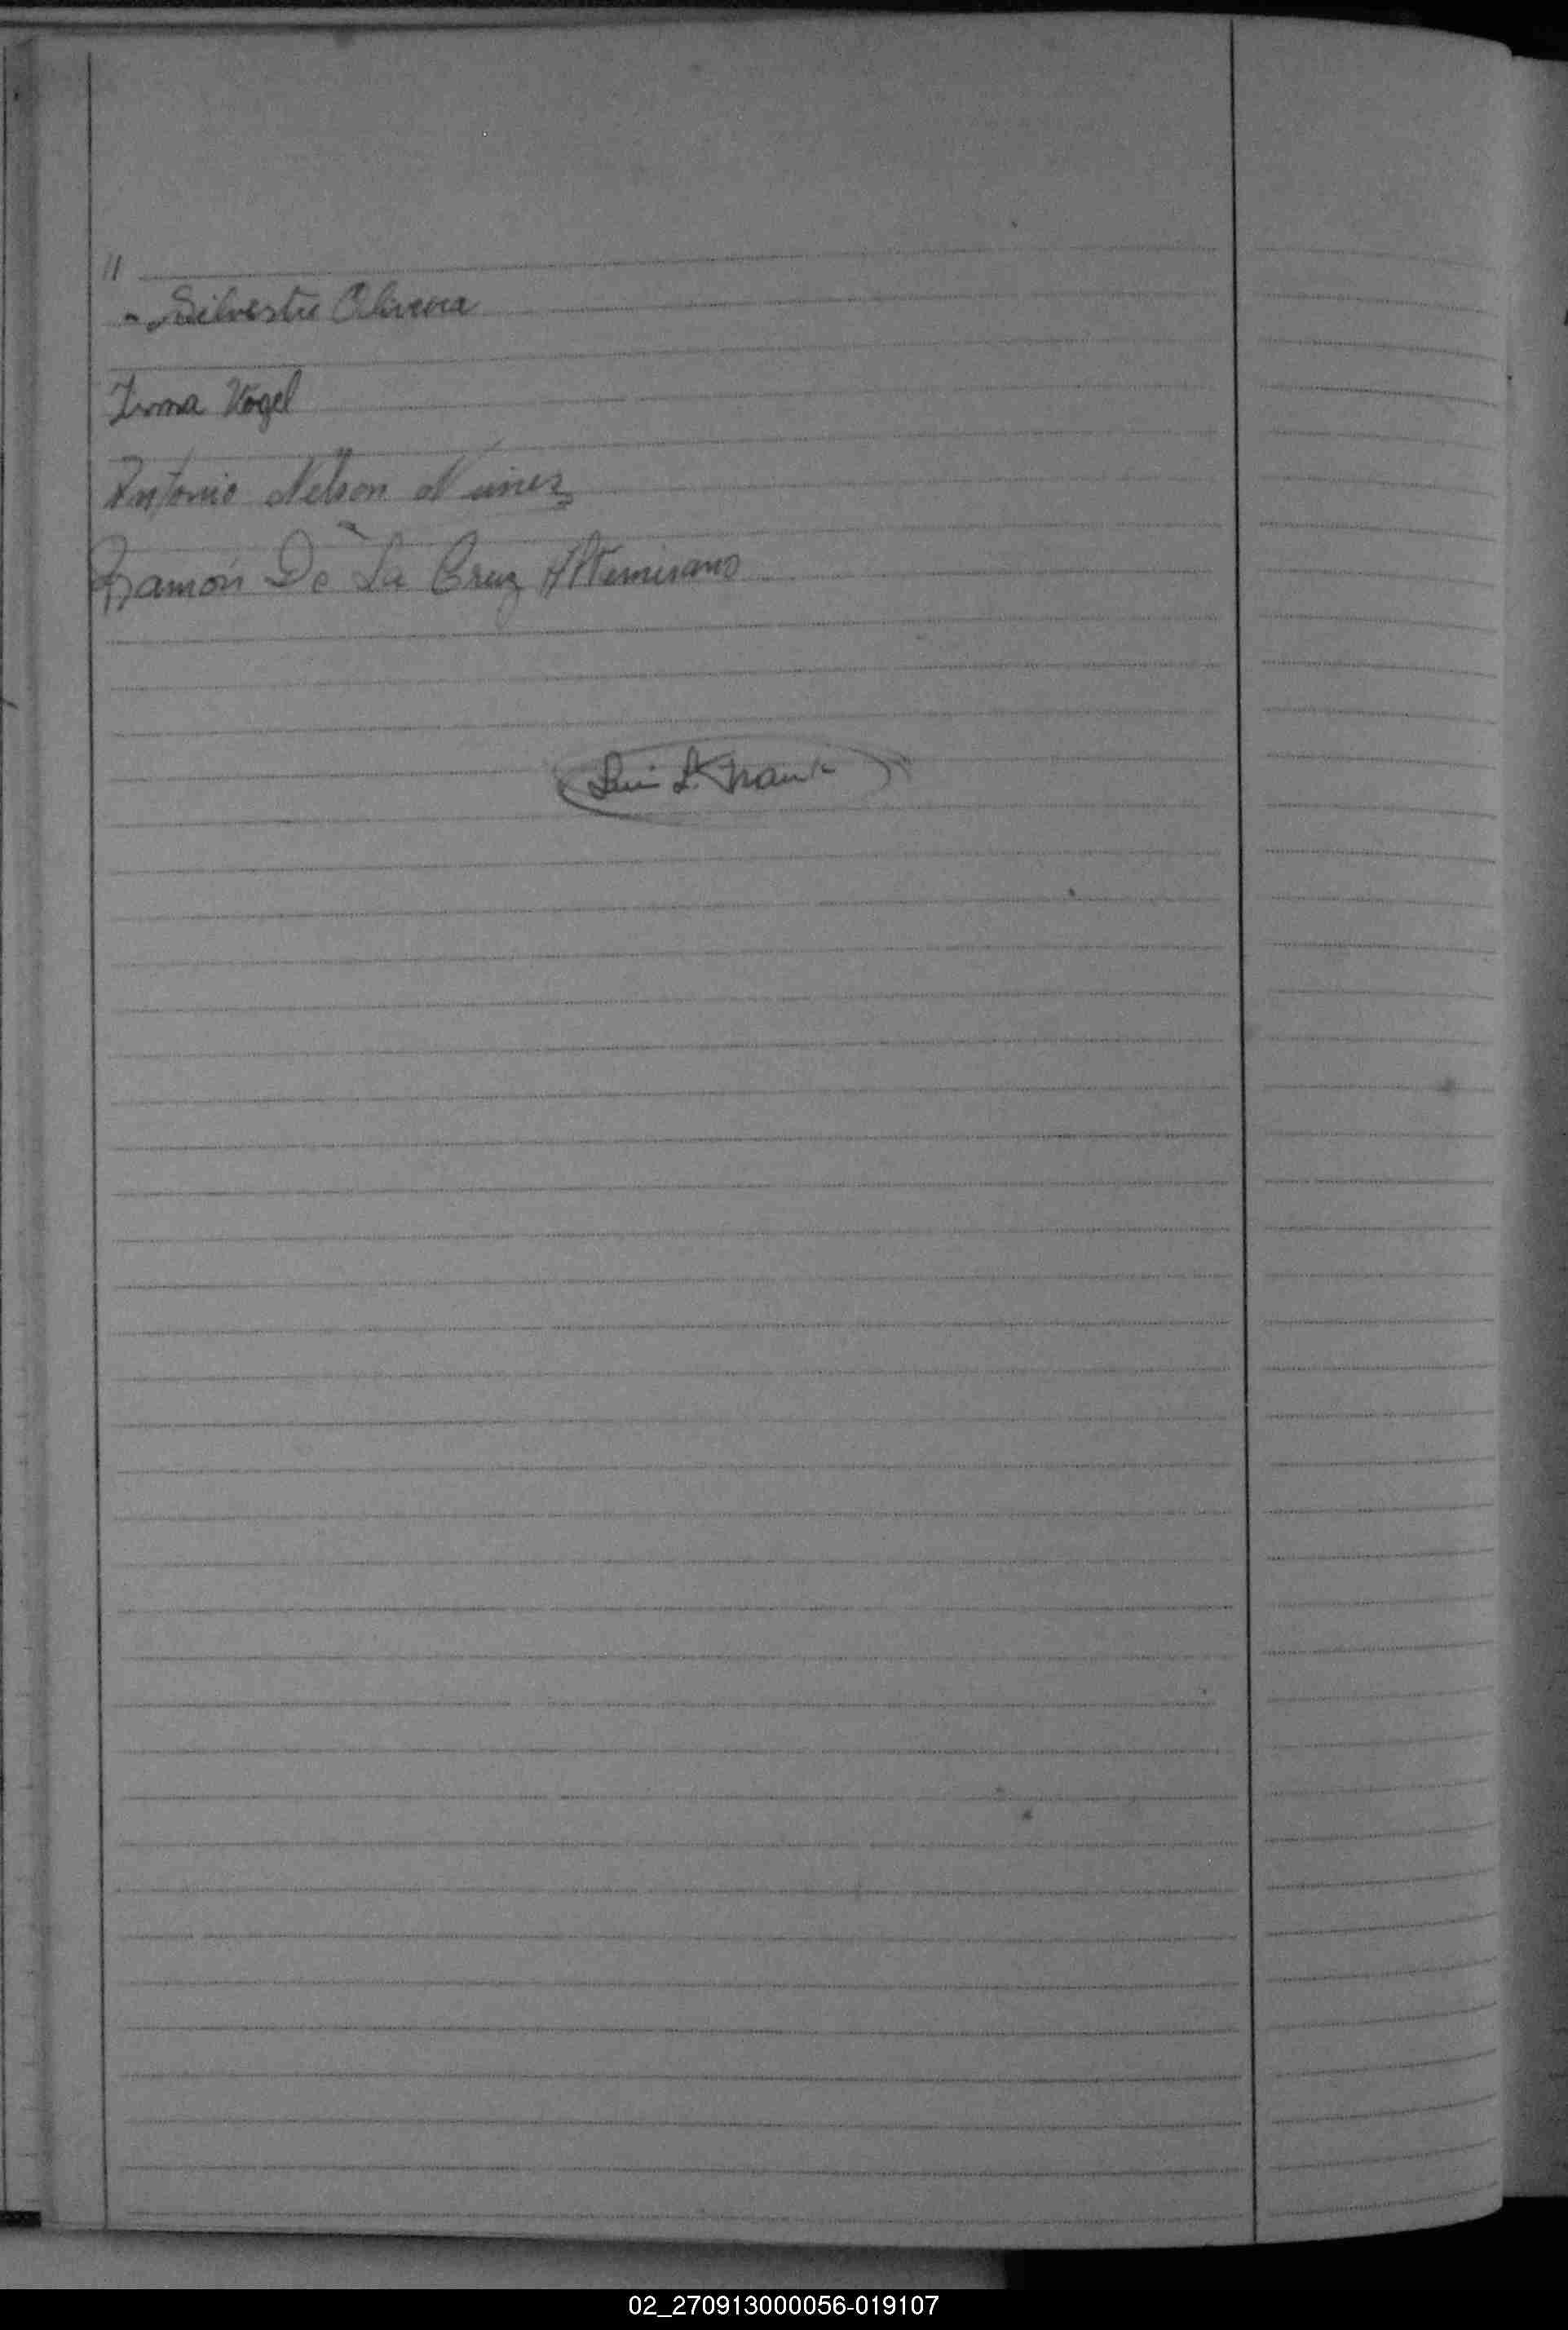 "
Silvestre Olivera
Irma Vogel
Antonio Nelson Nuñez
Ramón De La Cruz Altemirano
Luis L. Frank
02_270913000056-019107